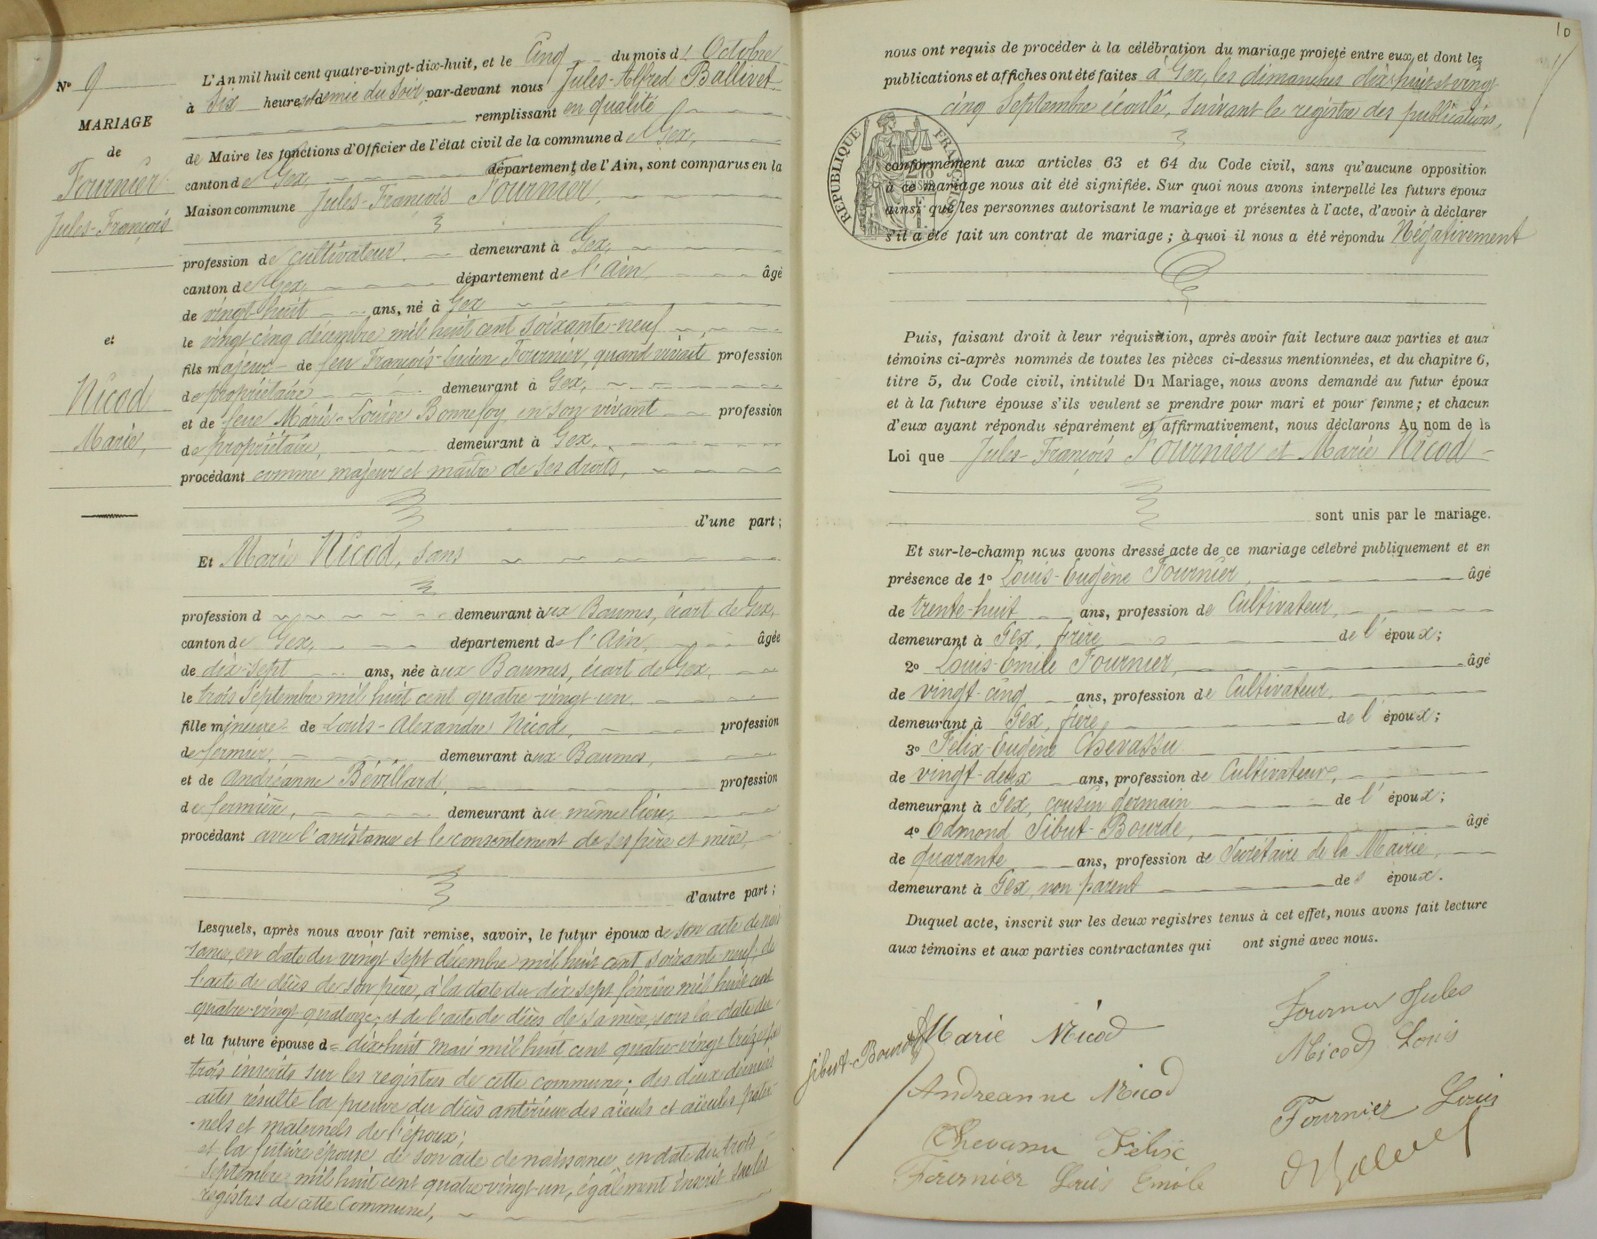 No 9
MARIAGE
de
Fournier
Jules-François
et
Nicod
Marie,
L'An mil huit cent quatre-vingt-dix-huit, et le Cinq du mois d' Octobre
à Six heures et demie du Soir, par-devant nous Jules-Alfred Ballivet
remplissant en qualité
de Maire les fonctions d'Officier de l'état civil de la commune de Gex,
canton de Gex, département de l'Ain, sont comparus en la
Maison commune Jules-François Fournier,
profession de cultivateur demeurant à Gex,
canton de Gex, département de l'Ain, âgé
de vingt-huit ans, né à Gex
le vingt cinq décembre mil huit cent soixante-neuf
fils majeur de feu François-Lucien Fournier, quand vivait profession
de propriétaire demeurant à Gex,
et de feue Marie-Louise Bonnefoy, en son vivant profession
de propriétaire, demeurant à Gex,
procédant comme majeur et maître de ses droits,
d'une part;
Et Marie Nicod, sans
profession d demeurant aux Baumes, écart de Gex,
canton de Gex, département de l'Ain, âgée
de dix-sept ans, née aux Baumes, écart de Gex,
le trois Septembre mil huit cent quatre-vingt-un
fille mineure de Louis-Alexandre Nicod, profession
de fermier, demeurant aux Baumes,
et de Andréanne Bévillard, profession
de fermière, demeurant au même lieu,
procédant avec l'assistance et le consentement de ses père et mère,
d'autre part;
Lesquels, après nous avoir fait remise, savoir, le futur époux de son acte de nais
sance, en date du vingt sept décembre mil huit cent soixante-neuf, de
l'acte de décès de son père, à la date du dix sept février mil huit cent
quatre-vingt quatorze, et de l'acte de décès de sa mère, sous la date du
et la future épouse d= dix-huit mai mil huit cent quatre-vingt treize,
trois inscrits sur les registres de cette commune; des deux derniers
actes résulte la preuve du décès antérieur des aïeuls et aïeules pater
-nels et maternels de l'époux;
et la future épouse de son acte de naissance, en date du trois
Septembre mil huit cent quatre-vingt-un, également inscrit sur les
registres de cette Commune,
10
nous ont requis de procéder à la célébration du mariage projeté entre eux, et dont les
publications et affiches ont été faites à Gex, les dimanches dix-huit et vingt
cinq Septembre écoulé, suivant le registre des publications,
RÉPUBLIQUE FRANÇAISE
conformément aux articles 63 et 64 du Code civil, sans qu'aucune opposition
à ce mariage nous ait été signifiée. Sur quoi nous avons interpellé les futurs époux
ainsi que les personnes autorisant le mariage et présentes à l'acte, d'avoir à déclarer
s'il a été fait un contrat de mariage; à quoi il nous a été répondu Négativement
Puis, faisant droit à leur réquisition, après avoir fait lecture aux parties et aux
témoins ci-après nommés de toutes les pièces ci-dessus mentionnées, et du chapitre 6,
titre 5, du Code civil, intitulé Du Mariage, nous avons demandé au futur époux
et à la future épouse s'ils veulent se prendre pour mari et pour femme; et chacun
d'eux ayant répondu séparément et affirmativement, nous déclarons Au nom de la
Loi que Jules-François Fournier et Marie Nicod
sont unis par le mariage.
Et sur-le-champ nous avons dressé acte de ce mariage célébré publiquement et en
présence de 1o Louis-Eugène Fournier, âgé
de trente-huit ans, profession de Cultivateur,
demeurant à Gex, frère de l'époux;
2o Louis-Emile Fournier, âgé
de vingt-cinq ans, profession de Cultivateur,
demeurant à Gex, frère de l'époux;
3o Félix-Eugène Chevassu
de vingt-deux ans, profession de Cultivateur,
demeurant à Gex, cousin germain de l'époux;
4o Edmond Sibut-Bourde, âgé
de quarante ans, profession de Secrétaire de la Mairie,
demeurant à Gex, non parent des époux.
Duquel acte, inscrit sur les deux registres tenus à cet effet, nous avons fait lecture
aux témoins et aux parties contractantes qui ont signé avec nous.
Sibut-Bourde Marie Nicod Fournier Jules
Nicod Louis
Andreanne Nicod
Fournier Louis
Chevassu Félix
Fournier Louis Emile